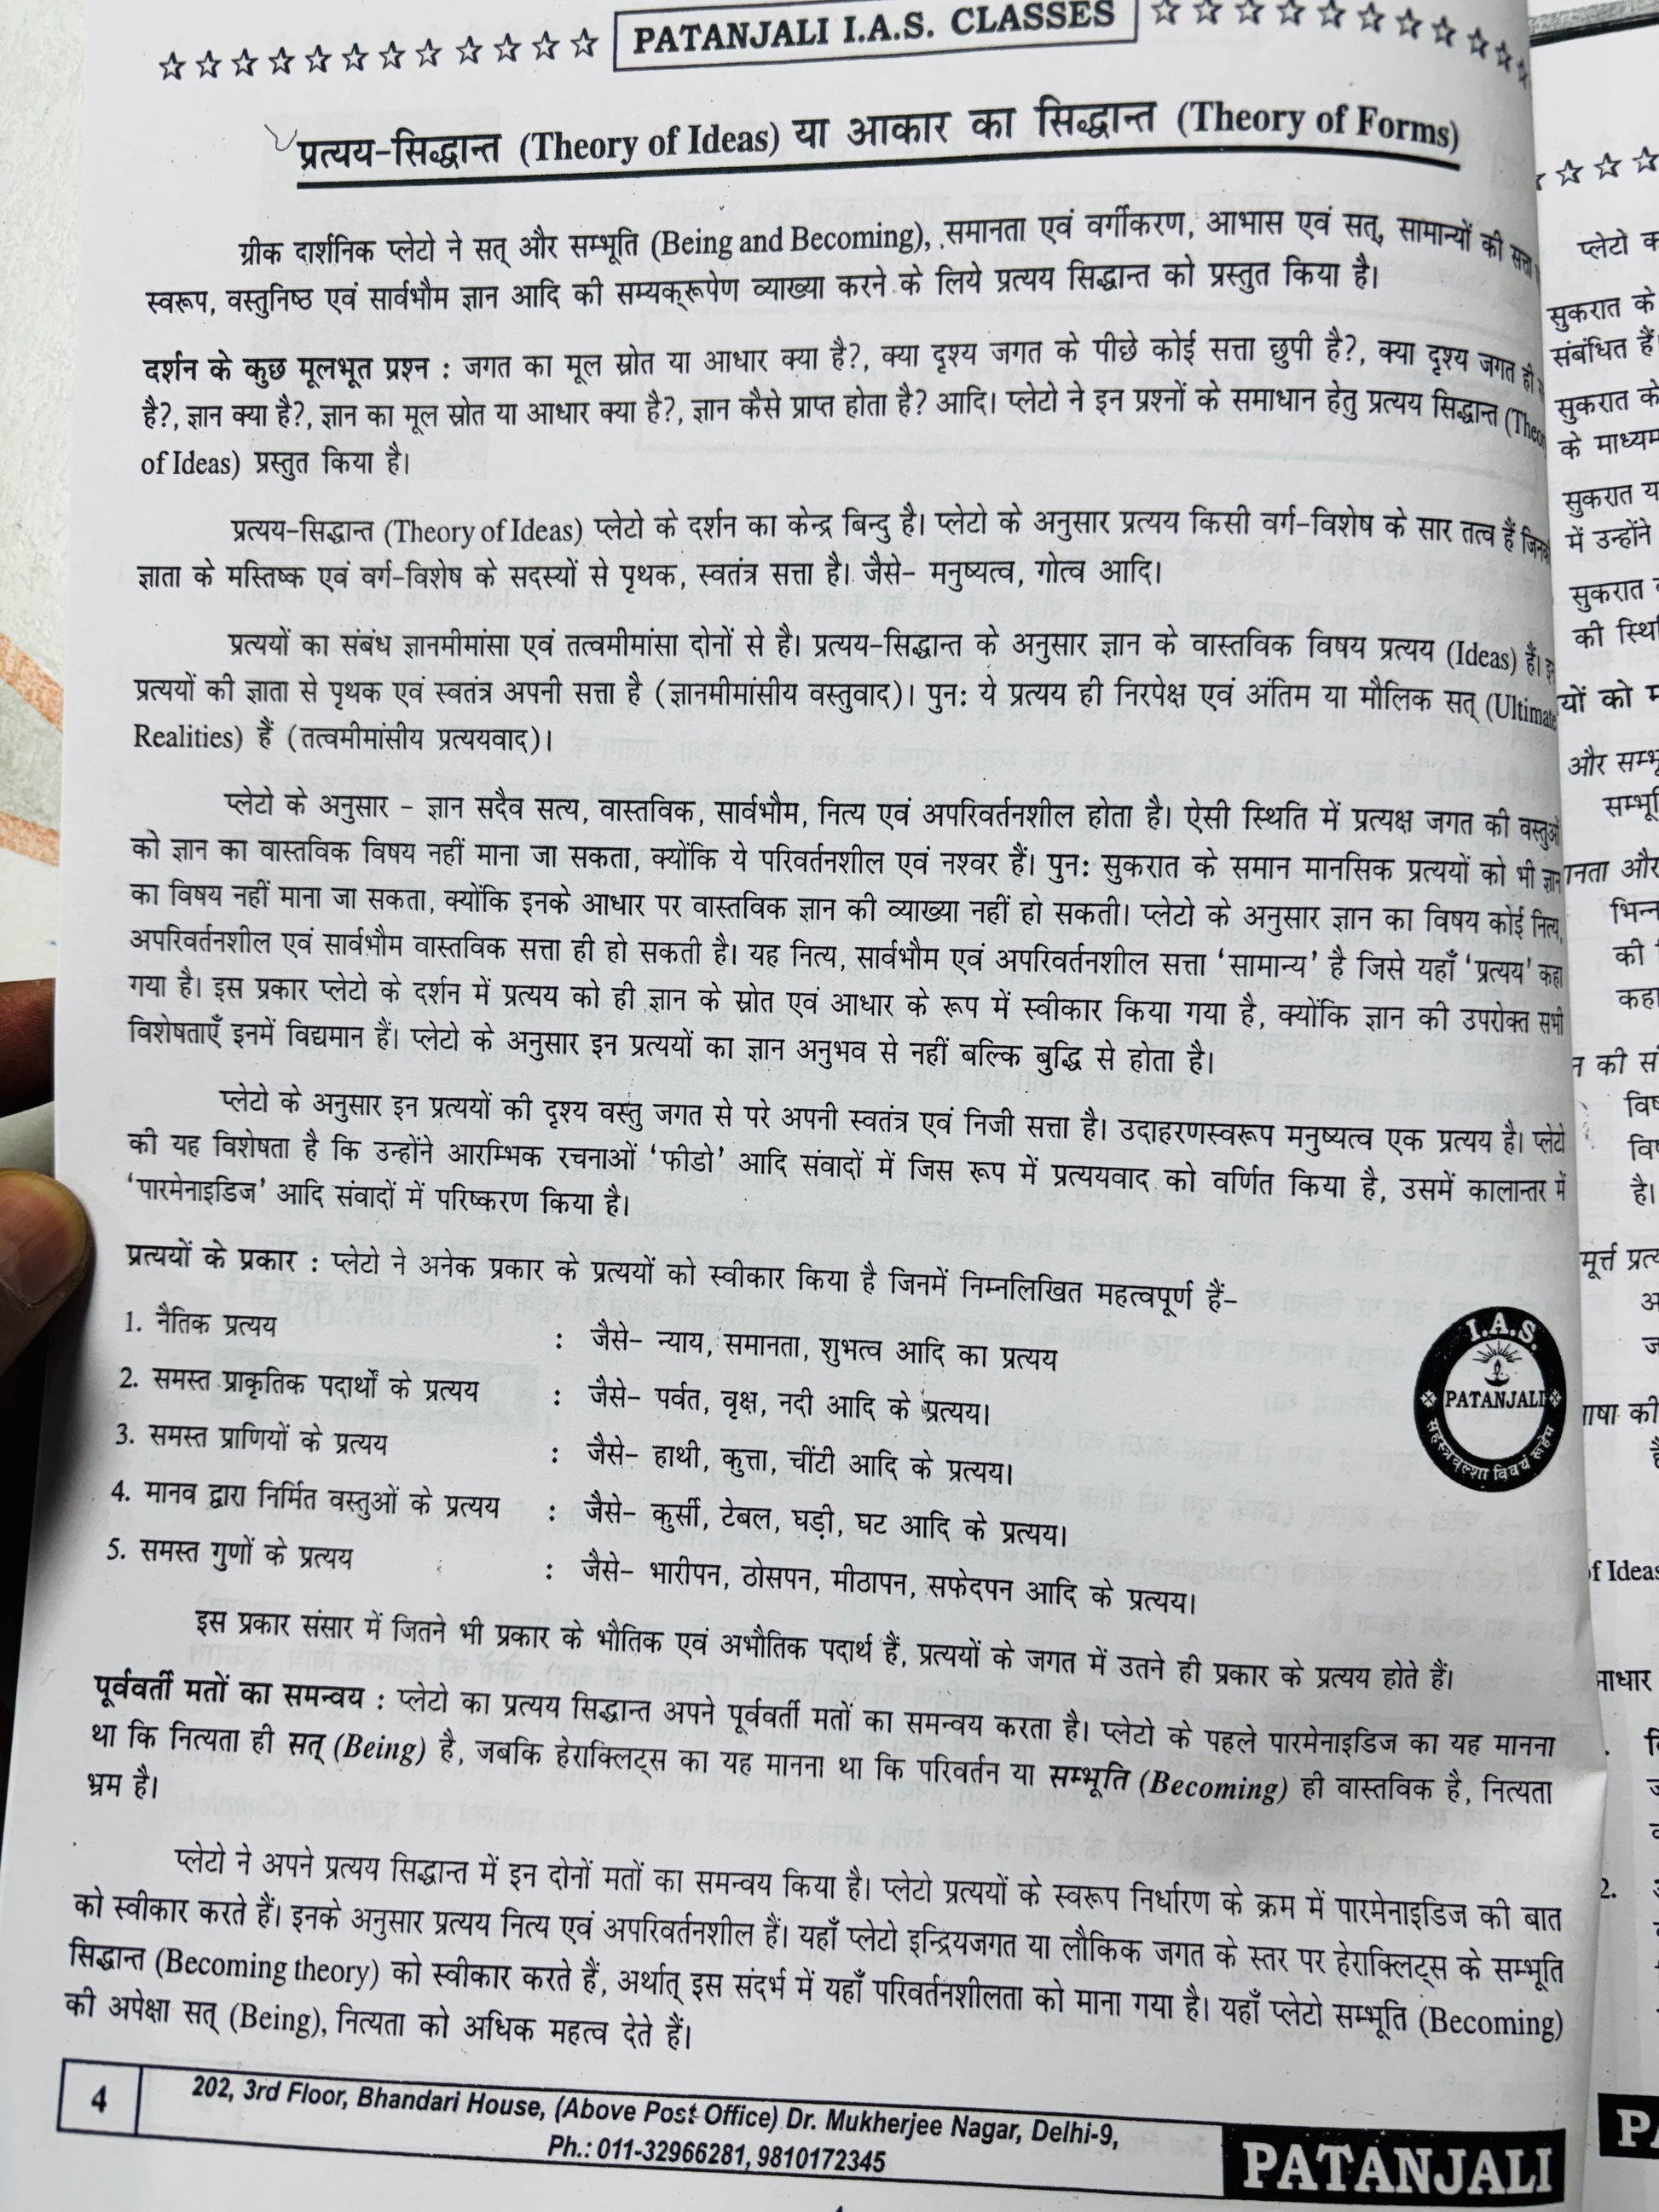 PATANJALI I.A.S. CLASSES
प्रत्यय-सिद्धान्त (Theory of Ideas) या आकार का सिद्धान्त (Theory of Forms)
ग्रीक दार्शनिक प्लेटो ने सत् और सम्भूति (Being and Becoming), समानता एवं वर्गीकरण, आभास एवं सत्, सामान्यों की सत्ता
स्वरूप, वस्तुनिष्ठ एवं सार्वभौम ज्ञान आदि की सम्यक्‌रूपेण व्याख्या करने के लिये प्रत्यय सिद्धान्त को प्रस्तुत किया है।
दर्शन के कुछ मूलभूत प्रश्न : जगत का मूल स्रोत या आधार क्या है?, क्या दृश्य जगत के पीछे कोई सत्ता छुपी है?, क्या दृश्य जगत ही
है?, ज्ञान क्या है?, ज्ञान का मूल स्रोत या आधार क्या है?, ज्ञान कैसे प्राप्त होता है? आदि। प्लेटो ने इन प्रश्नों के समाधान हेतु प्रत्यय सिद्धान्त (Theo
of Ideas) प्रस्तुत किया है।
प्रत्यय-सिद्धान्त (Theory of Ideas) प्लेटो के दर्शन का केन्द्र बिन्दु है। प्लेटो के अनुसार प्रत्यय किसी वर्ग-विशेष के सार तत्व हैं जिनक
ज्ञाता के मस्तिष्क एवं वर्ग-विशेष के सदस्यों से पृथक, स्वतंत्र सत्ता है। जैसे- मनुष्यत्व, गोत्व आदि।
प्रत्ययों का संबंध ज्ञानमीमांसा एवं तत्वमीमांसा दोनों से है। प्रत्यय-सिद्धान्त के अनुसार ज्ञान के वास्तविक विषय प्रत्यय (Ideas) हैं।
प्रत्ययों की ज्ञाता से पृथक एवं स्वतंत्र अपनी सत्ता है (ज्ञानमीमांसीय वस्तुवाद)। पुन: ये प्रत्यय ही निरपेक्ष एवं अंतिम या मौलिक सत् (Ultimate
Realities) हैं (तत्वमीमांसीय प्रत्ययवाद)।
प्लेटो के अनुसार - ज्ञान सदैव सत्य, वास्तविक, सार्वभौम, नित्य एवं अपरिवर्तनशील होता है। ऐसी स्थिति में प्रत्यक्ष जगत की वस्तुओं
को ज्ञान का वास्तविक विषय नहीं माना जा सकता, क्योंकि ये परिवर्तनशील एवं नश्वर हैं। पुन: सुकरात के समान मानसिक प्रत्ययों को भी ज्ञान
का विषय नहीं माना जा सकता, क्योंकि इनके आधार पर वास्तविक ज्ञान की व्याख्या नहीं हो सकती। प्लेटो के अनुसार ज्ञान का विषय कोई नित्य,
अपरिवर्तनशील एवं सार्वभौम वास्तविक सत्ता ही हो सकती है। यह नित्य, सार्वभौम एवं अपरिवर्तनशील सत्ता 'सामान्य' है जिसे यहाँ 'प्रत्यय' कहा
गया है। इस प्रकार प्लेटो के दर्शन में प्रत्यय को ही ज्ञान के स्रोत एवं आधार के रूप में स्वीकार किया गया है, क्योंकि ज्ञान की उपरोक्त सभी
विशेषताएँ इनमें विद्यमान हैं। प्लेटो के अनुसार इन प्रत्ययों का ज्ञान अनुभव से नहीं बल्कि बुद्धि से होता है।
प्लेटो के अनुसार इन प्रत्ययों की दृश्य वस्तु जगत से परे अपनी स्वतंत्र एवं निजी सत्ता है। उदाहरणस्वरूप मनुष्यत्व एक प्रत्यय है। प्लेटो
की यह विशेषता है कि उन्होंने आरम्भिक रचनाओं 'फीडो' आदि संवादों में जिस रूप में प्रत्ययवाद को वर्णित किया है, उसमें कालान्तर में
'पारमेनाइडिज' आदि संवादों में परिष्करण किया है।
प्रत्ययों के प्रकार : प्लेटो ने अनेक प्रकार के प्रत्ययों को स्वीकार किया है जिनमें निम्नलिखित महत्वपूर्ण हैं-
1. नैतिक प्रत्यय : जैसे- न्याय, समानता, शुभत्व आदि का प्रत्यय
2. समस्त प्राकृतिक पदार्थों के प्रत्यय : जैसे- पर्वत, वृक्ष, नदी आदि के प्रत्यय।
3. समस्त प्राणियों के प्रत्यय : जैसे- हाथी, कुत्ता, चींटी आदि के प्रत्यय।
4. मानव द्वारा निर्मित वस्तुओं के प्रत्यय : जैसे- कुर्सी, टेबल, घड़ी, घट आदि के प्रत्यय।
5. समस्त गुणों के प्रत्यय : जैसे- भारीपन, ठोसपन, मीठापन, सफेदपन आदि के प्रत्यय।
I.A.S.
PATANJALI
इस प्रकार संसार में जितने भी प्रकार के भौतिक एवं अभौतिक पदार्थ हैं, प्रत्ययों के जगत में उतने ही प्रकार के प्रत्यय होते हैं।
पूर्ववर्ती मतों का समन्वय : प्लेटो का प्रत्यय सिद्धान्त अपने पूर्ववर्ती मतों का समन्वय करता है। प्लेटो के पहले पारमेनाइडिज का यह मानना
था कि नित्यता ही सत् (Being) है, जबकि हेराक्लिट्स का यह मानना था कि परिवर्तन या सम्भूति (Becoming) ही वास्तविक है, नित्यता
भ्रम है।
प्लेटो ने अपने प्रत्यय सिद्धान्त में इन दोनों मतों का समन्वय किया है। प्लेटो प्रत्ययों के स्वरूप निर्धारण के क्रम में पारमेनाइडिज की बात
को स्वीकार करते हैं। इनके अनुसार प्रत्यय नित्य एवं अपरिवर्तनशील हैं। यहाँ प्लेटो इन्द्रियजगत या लौकिक जगत के स्तर पर हेराक्लिट्स के सम्भूति
सिद्धान्त (Becoming theory) को स्वीकार करते हैं, अर्थात् इस संदर्भ में यहाँ परिवर्तनशीलता को माना गया है। यहाँ प्लेटो सम्भूति (Becoming)
की अपेक्षा सत् (Being), नित्यता को अधिक महत्व देते हैं।
4
202, 3rd Floor, Bhandari House, (Above Post Office) Dr. Mukherjee Nagar, Delhi-9,
Ph.: 011-32966281, 9810172345
PATANJALI
प्लेटो
सुकरात के
संबंधित हैं
सुकरात के
के माध्यम
सुकरात
में उन्होंने
सुकरात
की
यों को
और
भिन्न
की
कहा
की
है।
मूर्त्त
की
of Ideas
2.